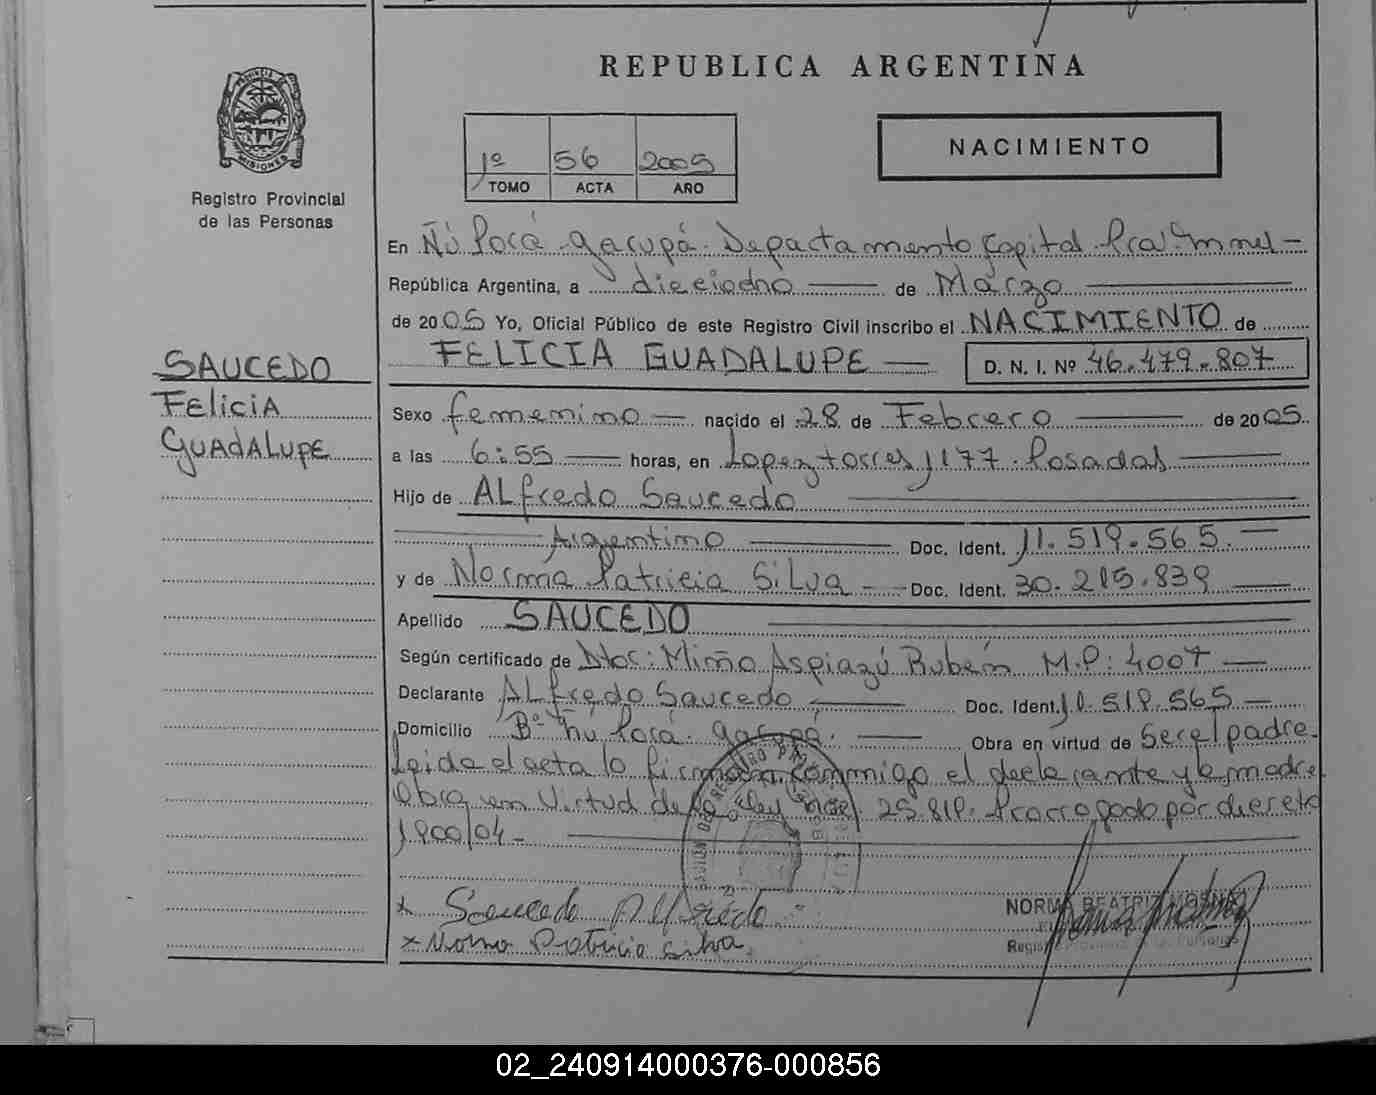 REPUBLICA ARGENTINA
PROVINCIA DE
MISIONES
Registro Provincial
de las Personas
1º 56 2005
TOMO ACTA AÑO
NACIMIENTO
En Ñú Porá - Garupá. Departamento Capital. Pcia.
República Argentina, a dieciocho de Marzo
de 2005 Yo, Oficial Público de este Registro Civil inscribo el NACIMIENTO de
FELICIA GUADALUPE D. N. I. Nº 46.479.807
SAUCEDO
FELiCiA
GUADALUPE
Sexo femenino nacido el 28 de Febrero de 2005
a las 6:55 horas, en Lopez torres 1177. Posadas
Hijo de ALfredo Saucedo
Argentino Doc. Ident. 11.519.565.
y de Norma Patricia SiLva Doc. Ident. 30.215.839
Apellido SAUCEDO
Según certificado de Dtor: Miño Aspiazú Rubén M.P: 4007
Declarante ALfredo Saucedo Doc. Ident. 11.519.565
Domicilio Bº Ñú Porá. Garupá. Obra en virtud de Ser el padre.
Leida el acta lo firman conmigo el declarante y la madre.
Obra en Virtud de la Ley Nac. 25.819. Prorrogado por decreto
1900/04-
x Saucedo Alfredo
x Norma Patricia Silva.
NORMA BEATRIZ
02_240914000376-000856